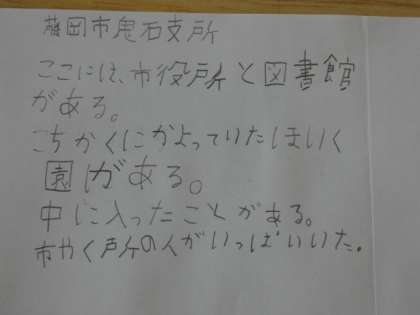 藤岡市鬼石支所
ここには、市役所と図書館
がある。
こちかくにかよっていたほいく
園がある。
中に入ったことがある。
市やく所の人がいっぱいいた。